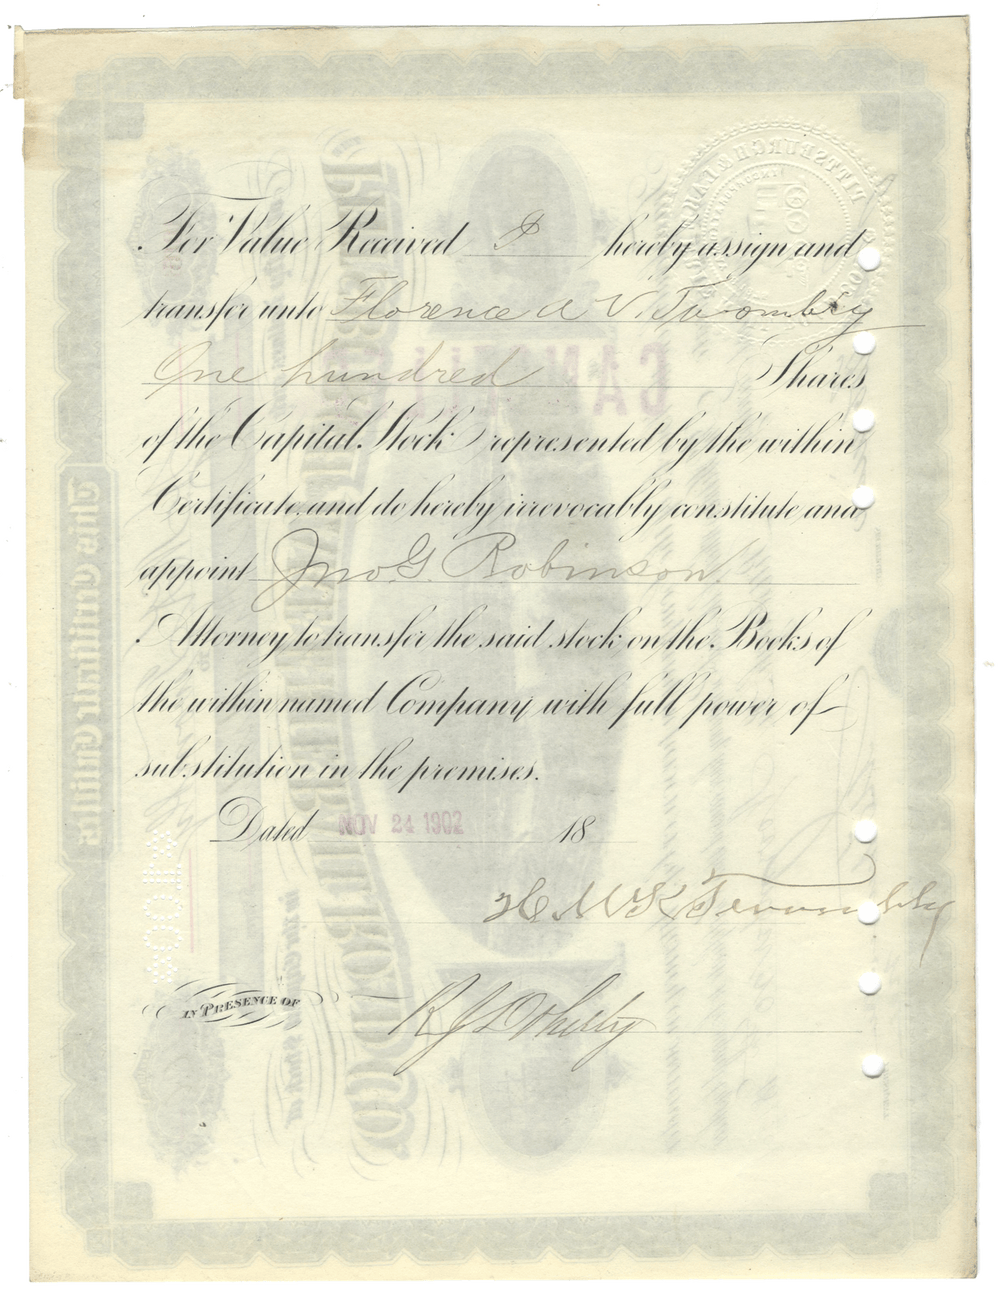 For Value Received I hereby assign and
transfer unto Florence A V. Twombly
One hundred Shares
of the Capital Stock represented by the within
Certificate and do hereby irrevocably constitute and
appoint Jno. G. Robinson.
Attorney to transfer the said stock on the Books of
the within named Company with full power of
substitution in the premises.
Dated NOV 24 1902 18
H McK Twombly
IN PRESENCE OF R J Doherty